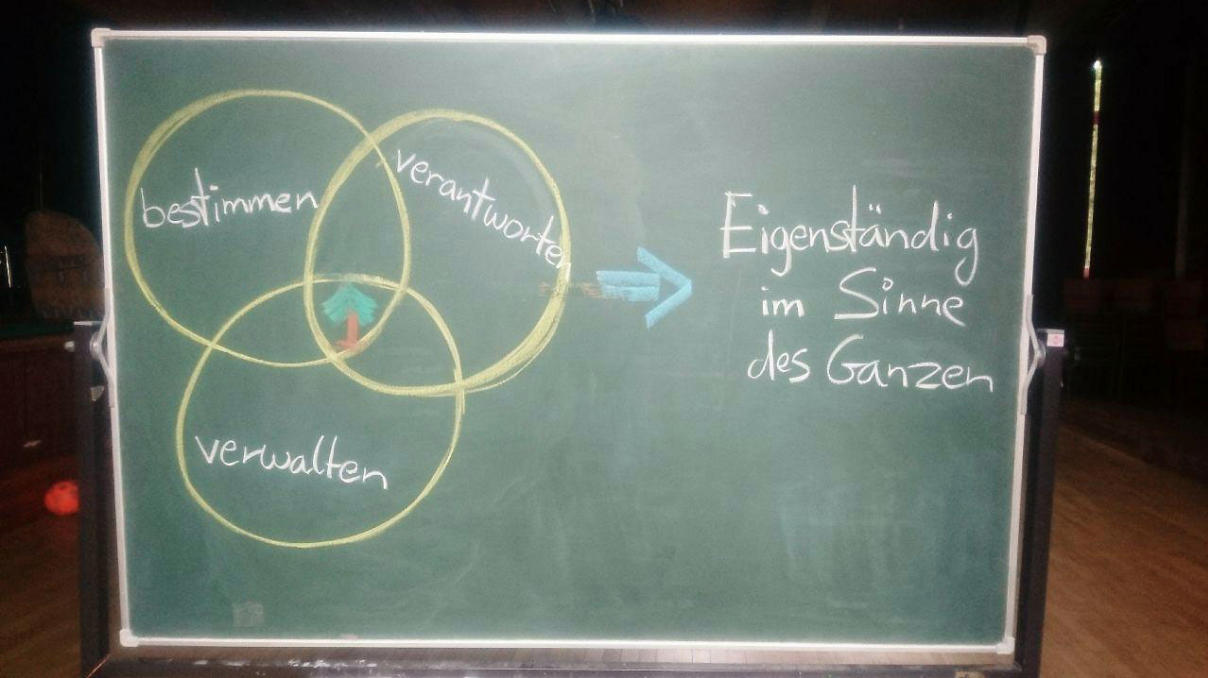 bestimmen
verantworten
verwalten
Eigenständig
im Sinne
des Ganzen